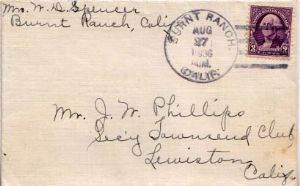 Mrs. W. D. Spencer
Burnt Ranch, Calif.
BURNT RANCH.
AUG
27
1936
A.M.
CALIF.
3 3
Mr. J. W. Phillips
Secy Townsend Club
Lewiston
Calif.